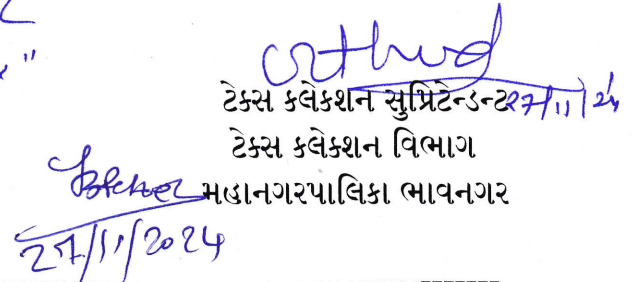 ટેક્સ કલેકશન સુપ્રિટેન્ડન્ટ 27/11/24
ટેક્સ કલેકશન વિભાગ
મહાનગરપાલિકા ભાવનગર
27/11/2024